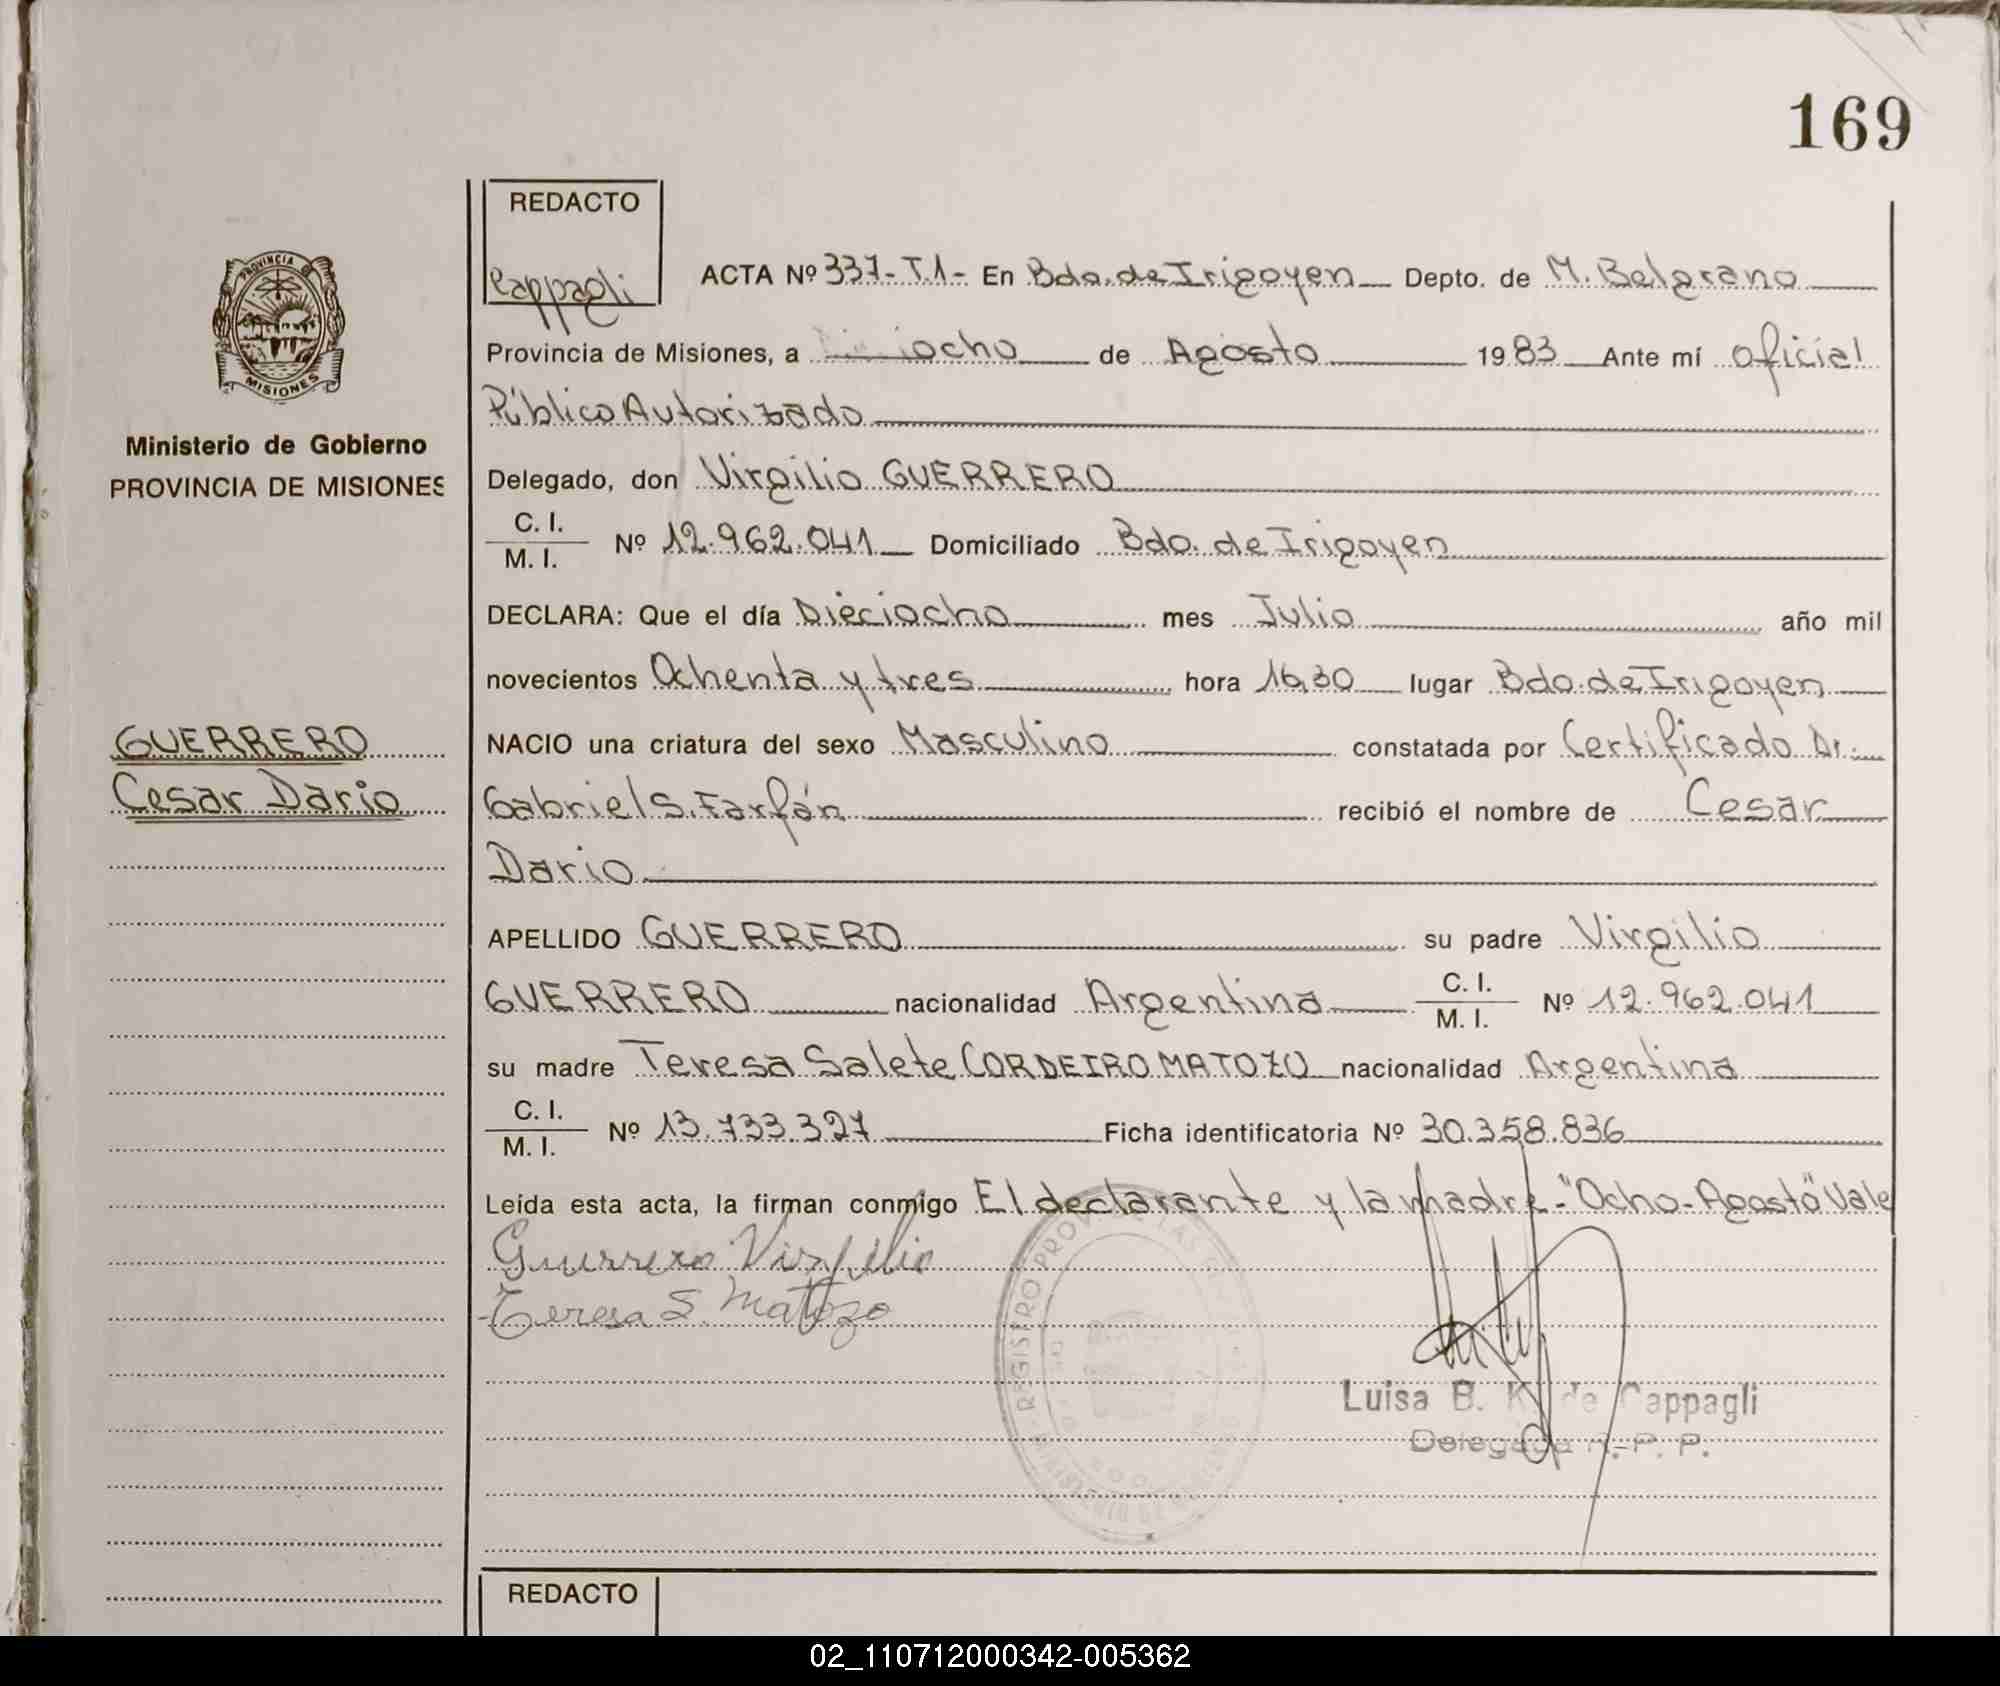 169
REDACTO
Cappagli
ACTA Nº 337-T.1- En Bdo. de Irigoyen Depto. de M. Belgrano
Provincia de Misiones, a ocho de Agosto 1983 Ante mí oficial
Público Autorizado
Delegado, don Virgilio GUERRERO
C. I.
M. I. Nº 12.962.041 Domiciliado Bdo. de Irigoyen
DECLARA: Que el día Dieciocho mes Julio año mil
novecientos Ochenta y tres hora 16,30 lugar Bdo. de Irigoyen
NACIO una criatura del sexo Masculino constatada por Certificado Dr.
Gabriel S. Farfán recibió el nombre de Cesar
Dario
APELLIDO GUERRERO su padre Virgilio
GUERRERO nacionalidad Argentina C. I. M. I. Nº 12.962.041
su madre Teresa Salete CORDEIRO MATOZO nacionalidad Argentina
C. I.
M. I. Nº 13.733.327 Ficha identificatoria Nº 30.358.836
Leída esta acta, la firman conmigo El declarante y la madre-"Ocho-Agosto" Vale
Guerrero Virgilio
Teresa S. Matozo
Luisa B. K. de Cappagli
Delegada R. P. P.
REGISTRO PROV. DE LAS
PROVINCIA
MISIONES
Ministerio de Gobierno
PROVINCIA DE MISIONES
GUERRERO
Cesar Dario
REDACTO
02_110712000342-005362